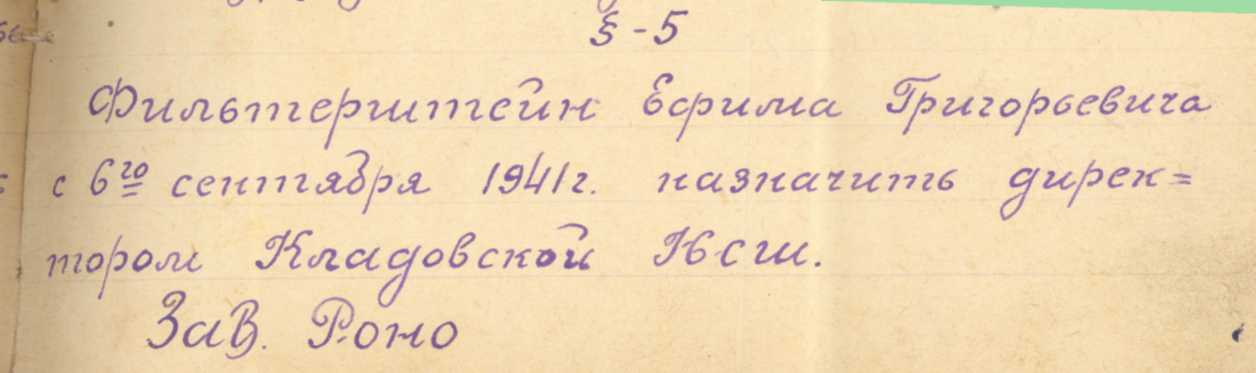 § - 5
Фильтерштейн Ефима Григорьевича
с 6го сентября 1941 г. назначить дирек=
тором Кладовской НСШ.
Зав. Роно